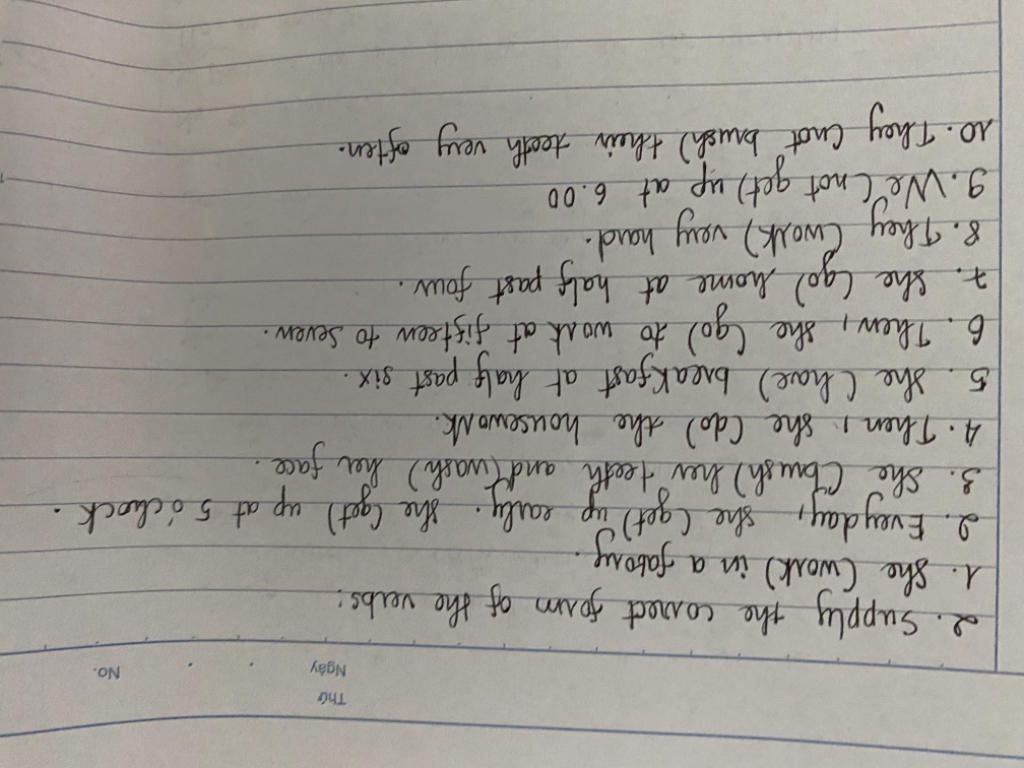 Thứ
Ngày No.
2. Supply the correct form of the verbs:
1. She (work) in a fatory.
2. Everyday, she (get) up early. She (get) up at 5 o'clock.
3. She (bush) her teeth and (wash) her face.
4. Then, she (do) the housework.
5. She (have) breakfast at half past six.
6. Then, she (go) to work at fifteen to seven.
7. She (go) home at half past four.
8. They (work) very hard.
9. We (not get) up at 6.00
10. They (not brush) their teeth very often.